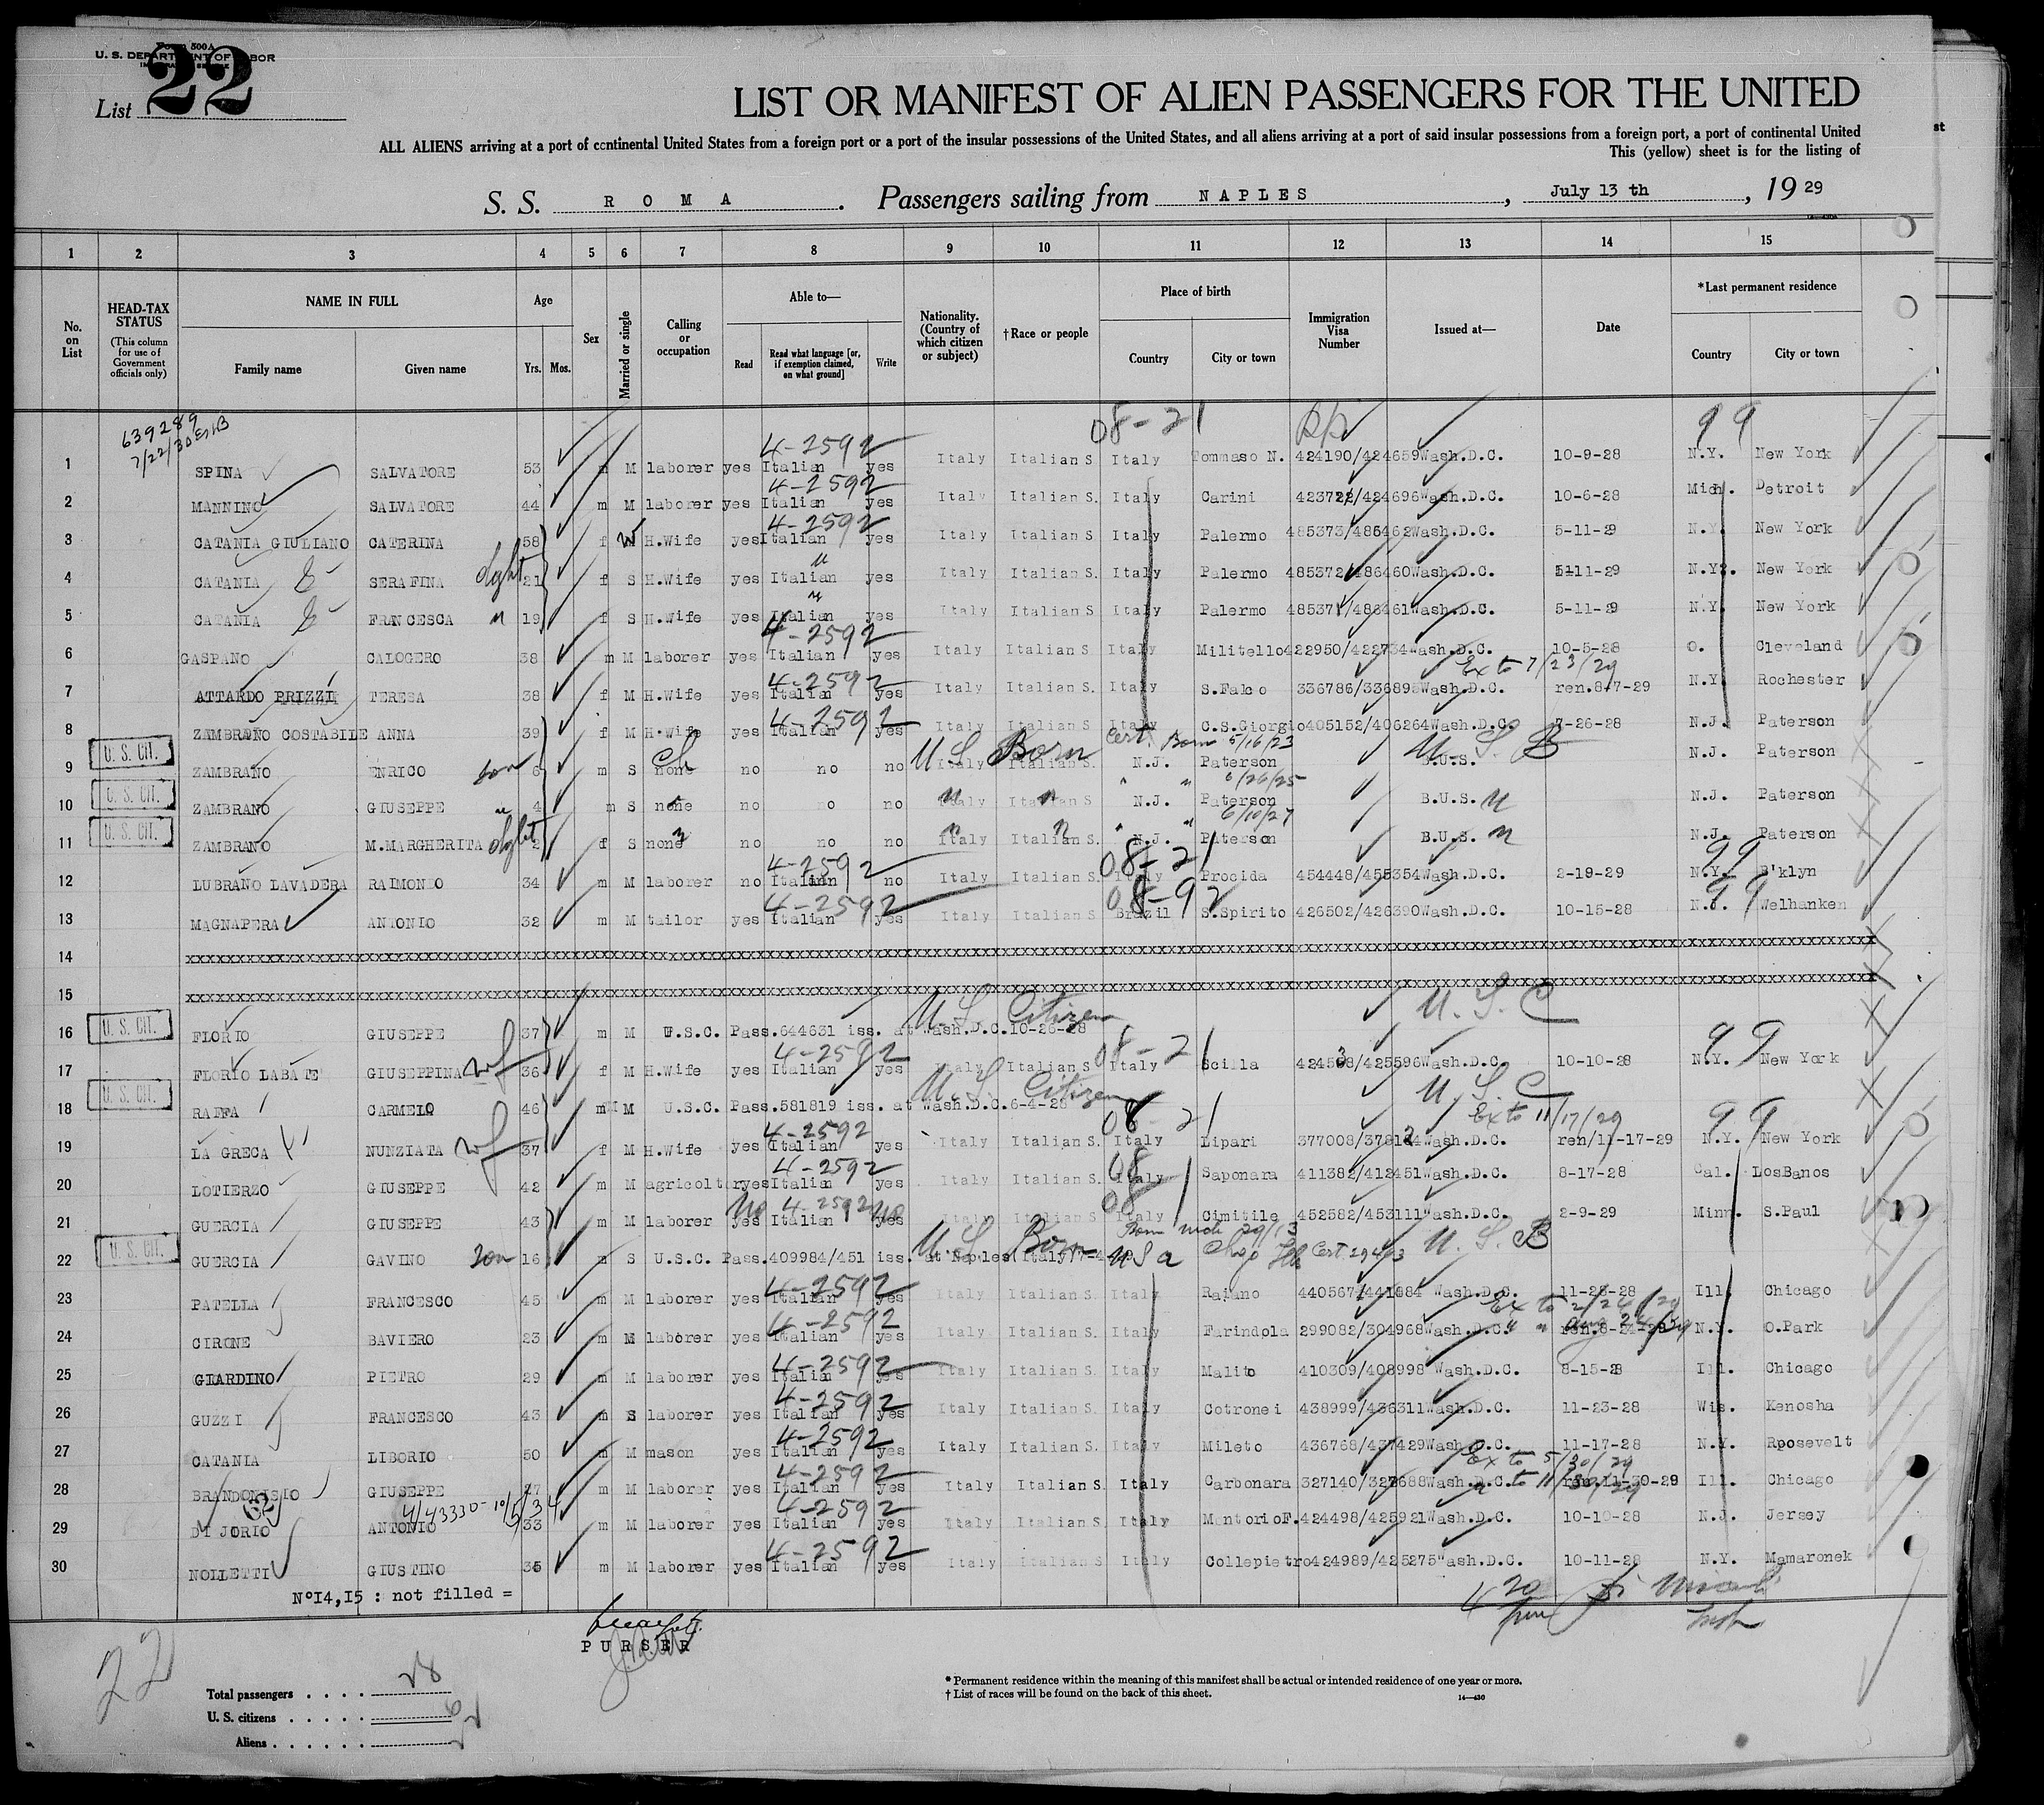 Form 500A
U. S. DEPARTMENT OF LABOR
List 22
LIST OR MANIFEST OF ALIEN PASSENGERS FOR THE UNITED
ALL ALIENS arriving at a port of continental United States from a foreign port or a port of the insular possessions of the United States, and all aliens arriving at a port of said insular possessions from a foreign port, a port of continental United
This (yellow) sheet is for the listing of
S. S. ROMA. Passengers sailing from NAPLES, July 13 th, 19 29
1 2 3 4 5 6 7 8 9 10 11 12 13 14 15
No. on List
HEAD-TAX STATUS
(This column for use of Government officials only)
NAME IN FULL
Family name
Given name
Age
Yrs. Mos.
Sex
Married or single
Calling or occupation
Able to—
Read
Read what language [or, if exemption claimed, on what ground]
Write
Nationality. (Country of which citizen or subject)
† Race or people
Place of birth
Country
City or town
Immigration Visa Number
Issued at—
Date
*Last permanent residence
Country
City or town
639289
7/22/30
08-21 99
4-2592
1 SPINA SALVATORE 53 m M laborer yes Italian yes Italy Italian S Italy Tommaso N. 424190/424659 Wash.D.C. 10-9-28 N.Y. New York
4-2592
2 MANNINO SALVATORE 44 m M laborer yes Italian yes Italy Italian S. Italy Carini 423722/424696 Wash.D.C. 10-6-28 Mich. Detroit
4-2592
3 CATANIA GIULIANO CATERINA 58 f W H.Wife yes Italian yes Italy Italian S Italy Palermo 485373/486462 Wash.D.C. 5-11-29 N.Y. New York
4 CATANIA SERAFINA dght 21 f S H.Wife yes Italian yes Italy Italian S. Italy Palermo 485372/486460 Wash.D.C. 5-11-29 N.Y. New York
5 CATANIA FRANCESCA " 19 f S H.Wife yes Italian yes Italy Italian S Italy Palermo 485371/486461 Wash.D.C. 5-11-29 N.Y. New York
4-2592
6 GASPANO CALOGERO 38 m M laborer yes Italian yes Italy Italian S Italy Militello 422950/422734 Wash.D.C. 10-5-28 O. Cleveland
4-2592 Ex to 7/23/29
7 ATTARDO PRIZZI TERESA 38 f M H.Wife yes Italian yes Italy Italian S. Italy S.Falco 336786/336895 Wash.D.C. ren.8-7-29 N.Y. Rochester
4-2592
8 ZAMBRANO COSTABILE ANNA 39 f M H.Wife yes Italian yes Italy Italian S Italy C.S.Giorgio 405152/406264 Wash.D.C. 7-26-28 N.J. Paterson
U. S. CIT. U S Born Cert. Born 5/16/23 U. S. B
9 ZAMBRANO ENRICO son 6 m S none no no no Italy Italian S. N.J. Paterson B.U.S. N.J. Paterson
U. S. CIT. " " 6/26/25
10 ZAMBRANO GIUSEPPE " 4 m S none no no no Italy Italian S N.J. Paterson B.U.S. " N.J. Paterson
U. S. CIT. " " 6/10/27
11 ZAMBRANO M.MARGHERITA dght 2 f S none no no no Italy Italian S. N.J. Paterson B.U.S. " N.J. Paterson
4-2592 08-21 99
12 LUBRANO LAVADERA RAIMONDO 34 m M laborer no Italian no Italy Italian S. Italy Procida 454448/455354 Wash.D.C. 2-19-29 N.Y. B'klyn
4-2592 08-92 99
13 MAGNAPERA ANTONIO 32 m M tailor yes Italian yes Italy Italian S Brazil S.Spirito 426502/426390 Wash.D.C. 10-15-28 N.J. Welhanken
14 xxxxxxxxxxxxxxxxxxxxxxxxxxxxxxxxxxxxxxxx
15 xxxxxxxxxxxxxxxxxxxxxxxxxxxxxxxxxxxxxxxx
U. S. CIT. U. S. Citizen U. S. C
16 FLORIO GIUSEPPE 37 m M U.S.C. Pass.644631 iss. at Wash.D.C.10-26-28
4-2592 08-21 99
17 FLORIO LABATE GIUSEPPINA wf 36 f M H.Wife yes Italian yes Italy Italian S Italy Scilla 424508/425596 Wash.D.C. 10-10-28 N.Y. New York
U. S. CIT. U. S. Citizen U. S. C
18 RAFFA CARMELO 46 m M U.S.C. Pass.581819 iss. at Wash.D.C.6-4-28
4-2592 08-21 Ex to 11/17/29 99
19 LA GRECA NUNZIATA wf 37 f M H.Wife yes Italian yes Italy Italian S. Italy Lipari 377008/378124 Wash.D.C. ren/11-17-29 N.Y. New York
4-2592 08
20 LOTIERZO GIUSEPPE 42 m M agricoltor yes Italian yes Italy Italian S. Italy Saponara 411382/412451 Wash.D.C. 8-17-28 Cal. LosBanos
No 4-2592 No 08
21 GUERCIA GIUSEPPE 43 m M laborer yes Italian yes Italy Italian S Italy Cimitile 452582/453111 Wash.D.C. 2-9-29 Minn. S.Paul
U. S. CIT. U. S. Born U S a Chgo Ills Cert 29493 U. S. B
22 GUERCIA GAVINO son 16 m S U.S.C. Pass.409984/451 iss. at Naples(Italy)
4-2592
23 PATELLA FRANCESCO 45 m M laborer yes Italian yes Italy Italian S Italy Raiano 440567/441084 Wash.D.C. 11-28-28 Ill. Chicago
4-2592 Ex to 2/24/29
24 CIRONE BAVIERO 23 m M laborer yes Italian yes Italy Italian S. Italy Farindola 299082/304968 Wash.D.C. ren.8-24-29 N.Y. O.Park
4-2592
25 GIARDINO PIETRO 29 m M laborer yes Italian yes Italy Italian S Italy Malito 410309/408998 Wash.D.C. 8-15-28 Ill. Chicago
4-2592
26 GUZZI FRANCESCO 43 m S laborer yes Italian yes Italy Italian S. Italy Cotronei 438999/436311 Wash.D.C. 11-23-28 Wis. Kenosha
4-2592
27 CATANIA LIBORIO 50 m M mason yes Italian yes Italy Italian S. Italy Mileto 436768/437429 Wash.D.C. 11-17-28 N.Y. Roosevelt
4-2592 Ex to 5/30/29
28 BRANDONISIO GIUSEPPE 27 m M laborer yes Italian yes Italy Italian S. Italy Carbonara 327140/327688 Wash.D.C. ren.11-30-29 Ill. Chicago
4-2592
29 DI JORIO ANTONIO 33 m M laborer yes Italian yes Italy Italian S. Italy MontorioF. 424498/425921 Wash.D.C. 10-10-28 N.J. Jersey
4-2592
30 NOLLETTI GIUSTINO 35 m M laborer yes Italian yes Italy Italian S Italy Collepietro 424989/425275 Wash.D.C. 10-11-28 N.Y. Mamaronek
N°14,15 : not filled =
PURSER
22
Total passengers . . . . 28
U. S. citizens . . . . . 6
Aliens . . . . . .
* Permanent residence within the meaning of this manifest shall be actual or intended residence of one year or more.
† List of races will be found on the back of this sheet.
14—430